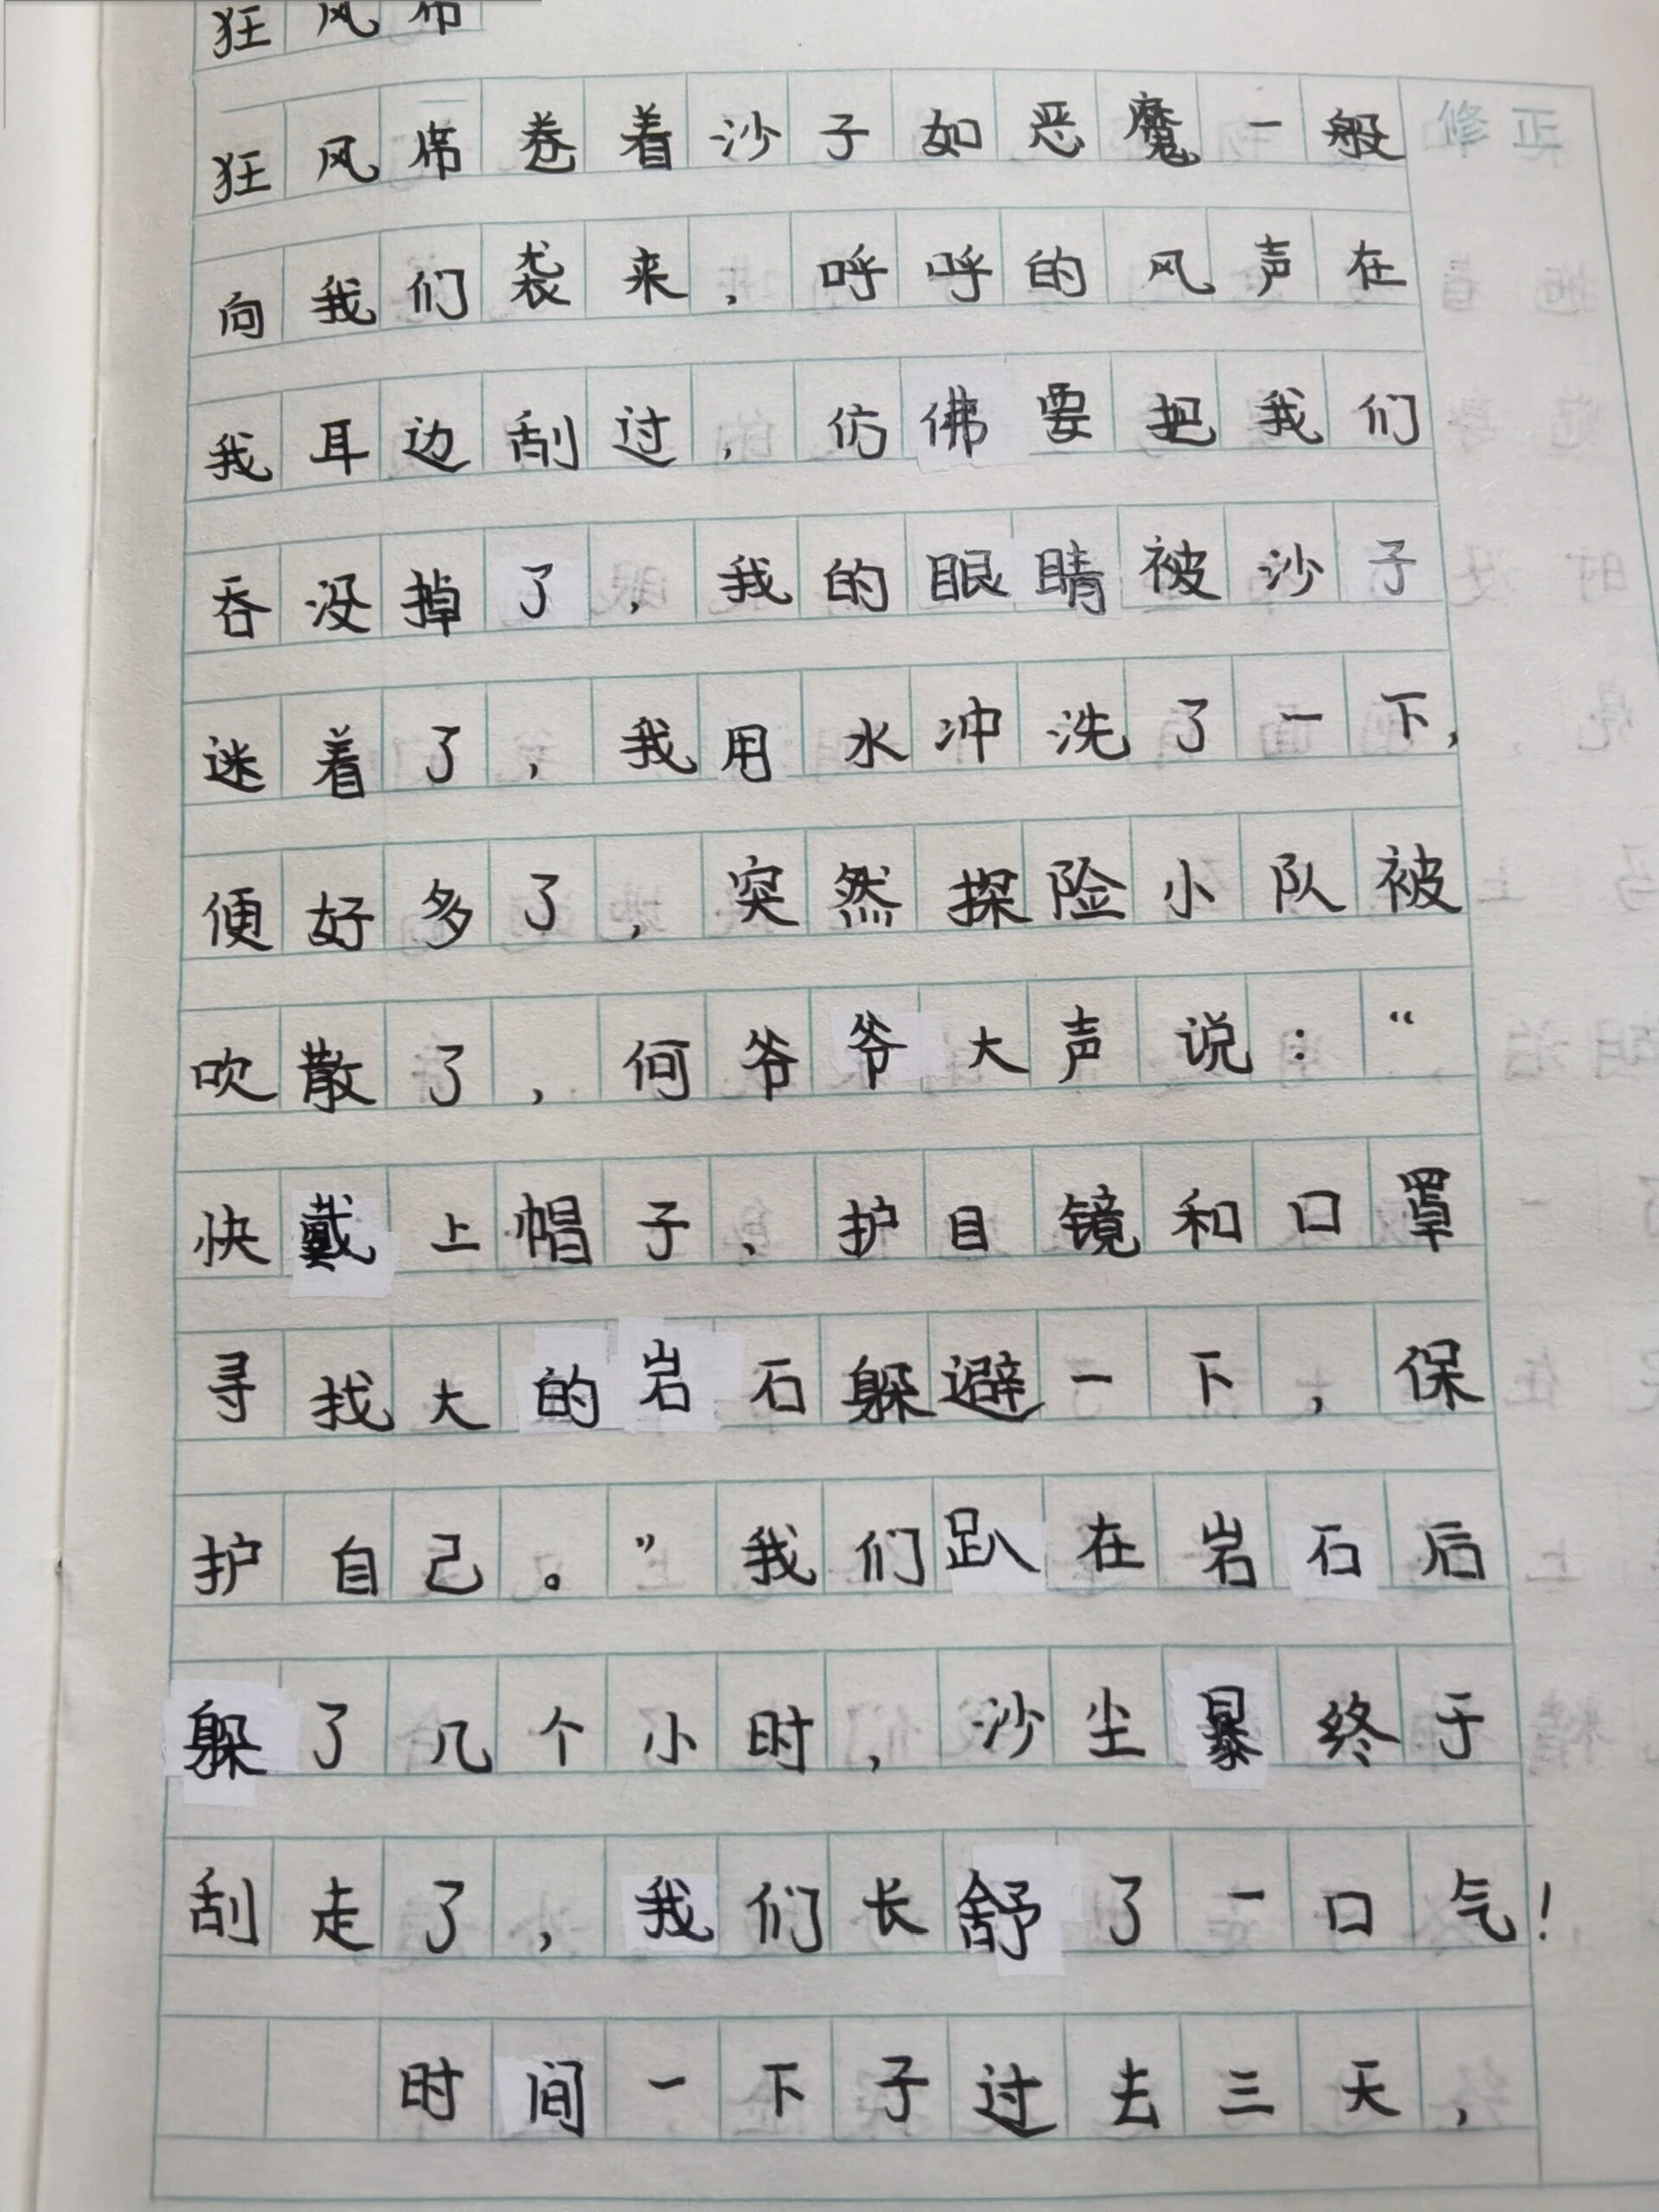 狂风席
狂风席卷着沙子如恶魔一般
修正
向我们袭来，呼呼的风声在
我耳边刮过，仿佛要把我们
吞没掉了，我的眼睛被沙子
迷着了，我用水冲洗了一下，
便好多了，突然探险小队被
吹散了，何爷爷大声说：“
快戴上帽子、护目镜和口罩
寻找大的岩石躲避一下，保
护自己。”我们趴在岩石后
躲了几个小时，沙尘暴终于
刮走了，我们长舒了一口气！
时间一下子过去三天，